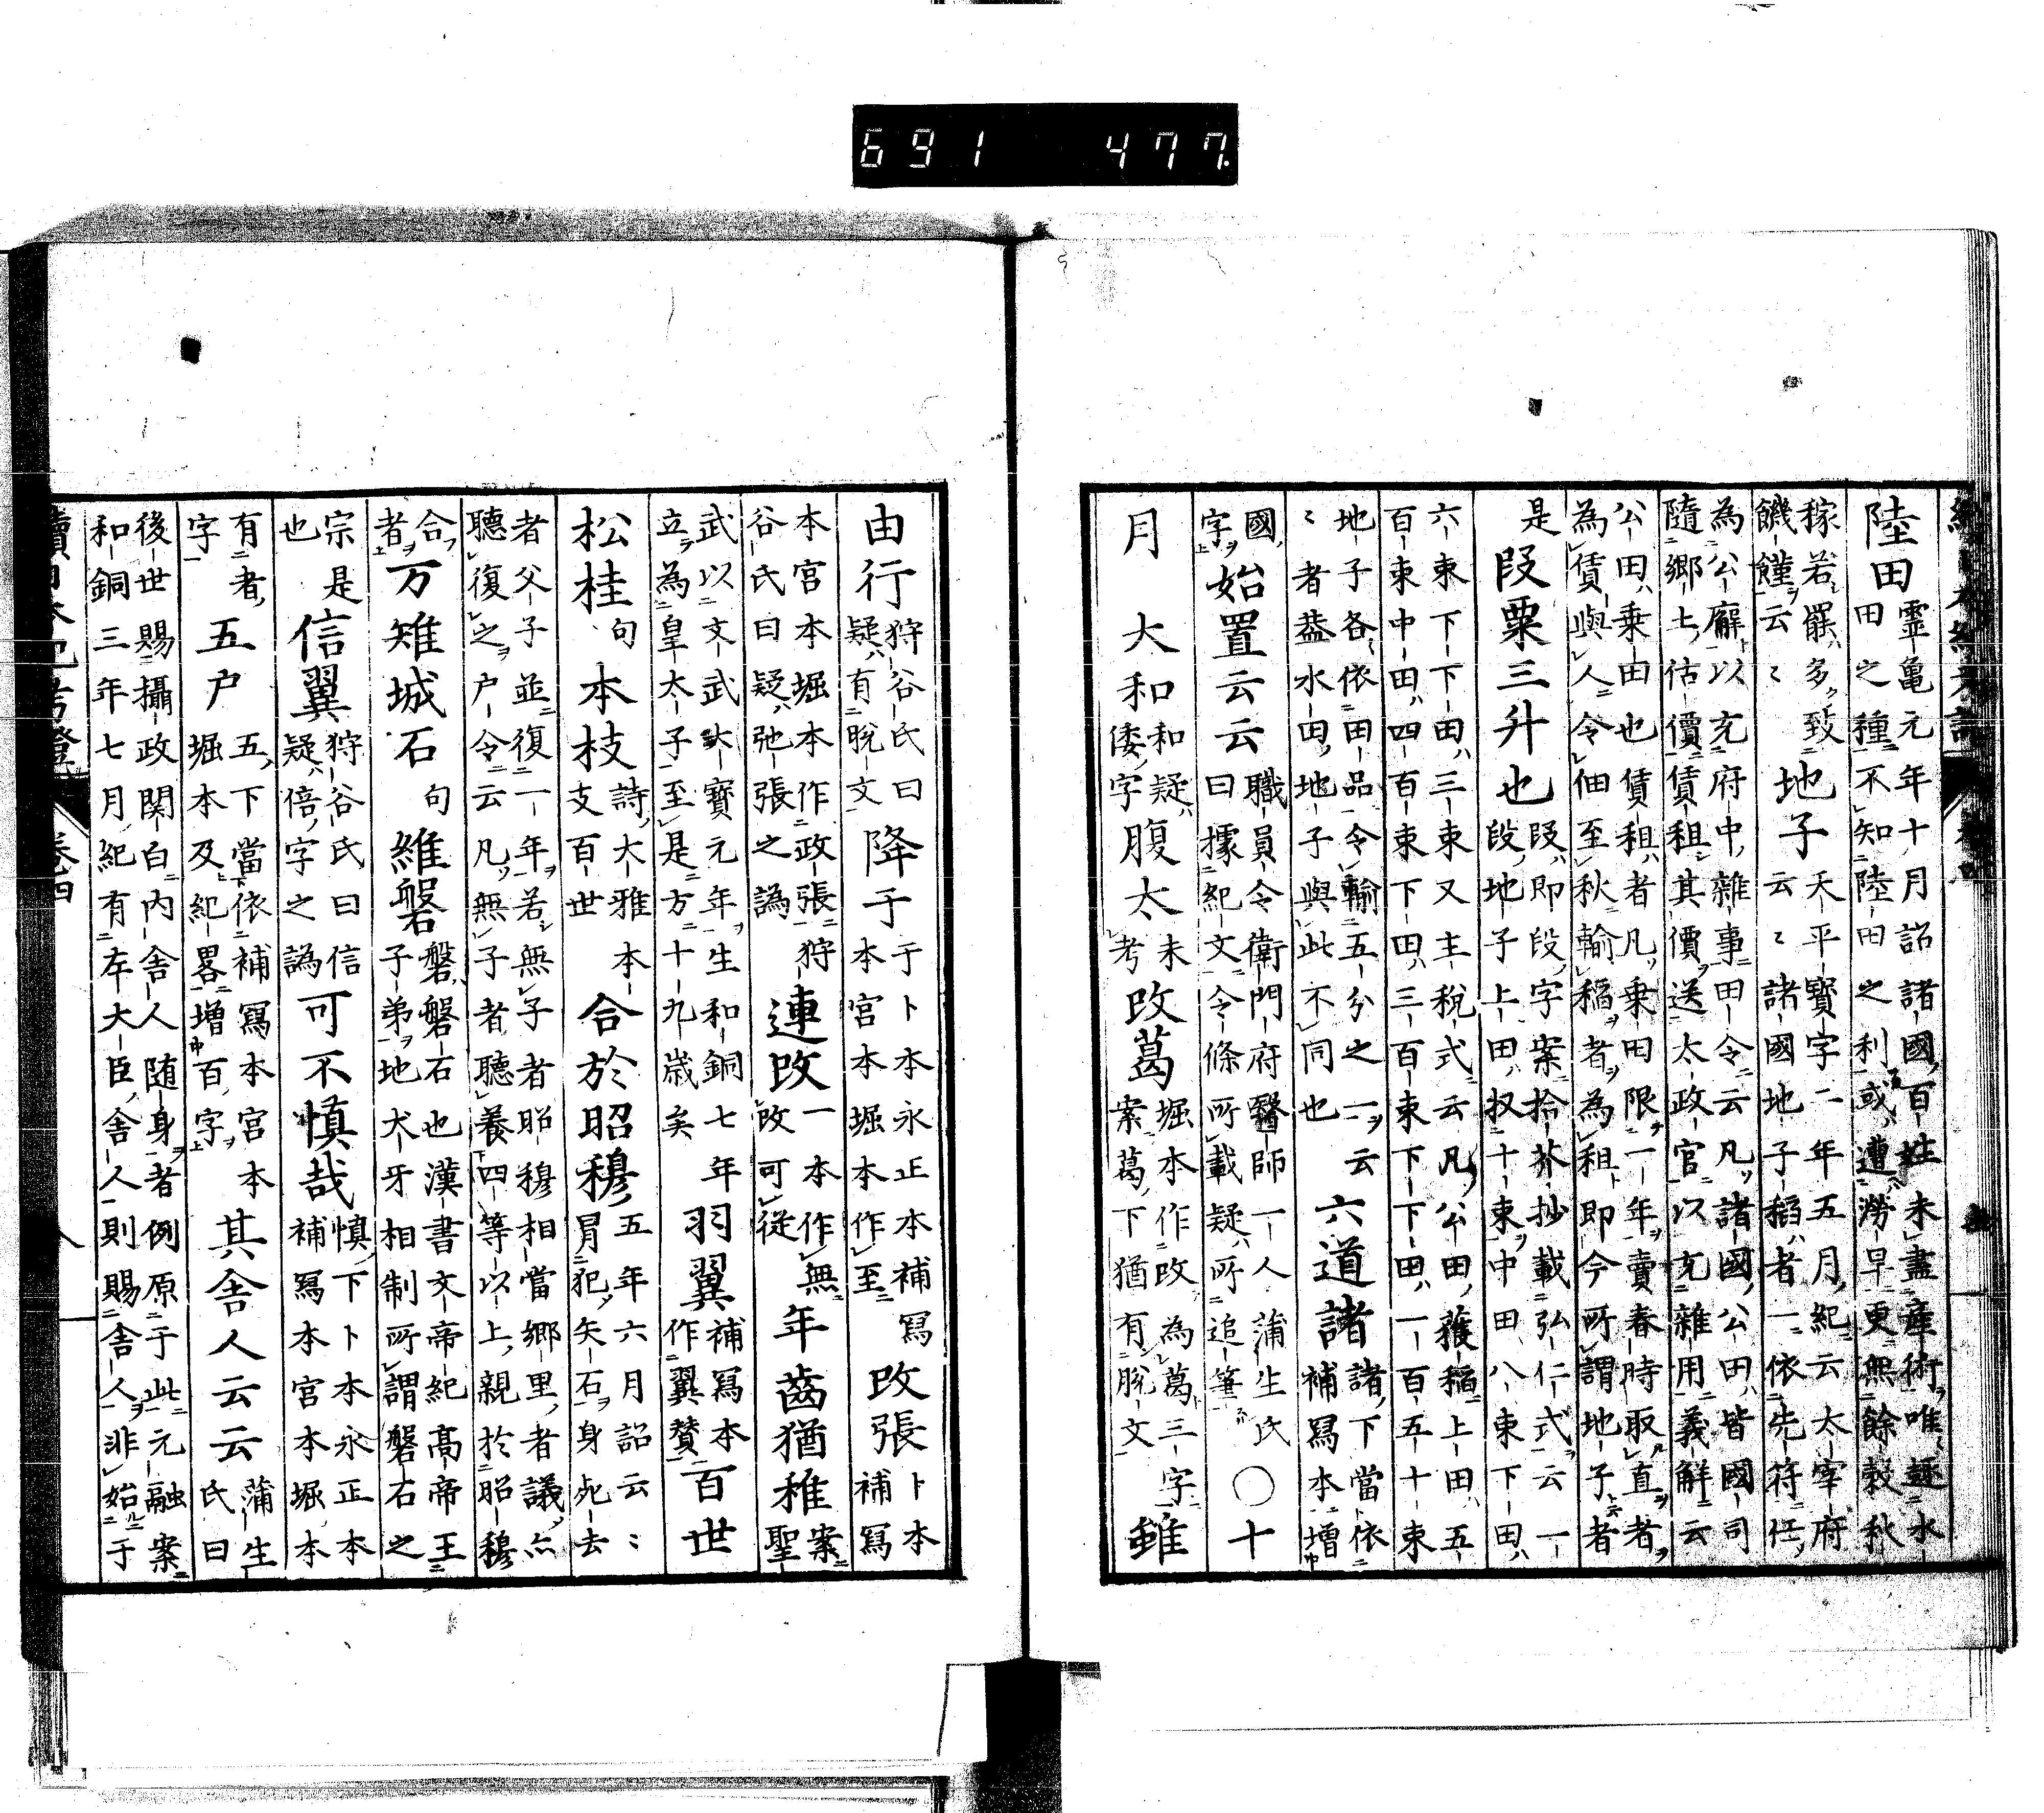 陸田靈亀元年十月詔諸國百姓未盡産術唯趣水
田之種不知陸田之利或遭澇旱更無餘穀秋
稼若罷多致
饑饉云〻
地子天平寳字二年五月紀云太宰府
云〻諸國地子稲者一依先符任
為公廨以充府中雜事田令云凡諸國公田皆國司
隨郷土估價賃租其價送太政官以充雜用義解云
公田乗田也賃租者凡乗田限一年賣春時取直者
為賃與人令佃至秋輸稲者為租即今所謂地子者
是段粟三升也叚即段字案拾芥抄載弘仁式云一
段地子上田扠十束中田八束下田
六束下下田三束又主税式云凡公田獲稲上田五
百束中田四百束下田三百束下下田一百五十束
地子各依田品令輸五分之一云
〻者葢水田地子與此不同也
六道諸諸下當依
補寫本増
國
字
始置云云職員令衛門府醫師一人蒲生氏
曰據紀文令條所載疑所追筆
〇十
月 大和和疑
倭字
腹太未
考
改葛堀本作改為葛三字
案葛下猶有脱文
雖
由行狩谷氏曰
疑有脱文
降于于卜本永正本補寫
本宮本堀本作至
改張卜本
補寫
本宮本堀本作政張狩
谷氏曰疑弛張之譌
連改一本作無
改可從
年齒猶稚案
聖
武以文武大寳元年生和銅七年
立為皇太子至是方十九歳矣
羽翼補寫本
作翼贊
百世
松桂句本枝詩大雅本
支百世
合於昭穆五年六月詔云〻
冐犯矢石身死去
者父子並復一年若無子者昭穆相當郷里者議亦
聽復之戸令云凡無子者聽養四等以上親於昭穆
合
者
万雉城石句維磐磐磐石也漢書文帝紀髙帝王
子弟地犬牙相制所謂磐石之
宗
也
是信翼狩谷氏曰信
疑倍字之譌
可不慎哉慎下卜本永正本
補寫本宮本堀本
有
字
者五户五下當依補寫本宮本
堀本及紀畧増百字
其舎人云云蒲生
氏曰
後世賜攝政関白内舎人随身者例原于此元融案
和銅三年七月紀有左大臣舎人則賜舎人非始于
續日本紀考證 卷四 八
691 477